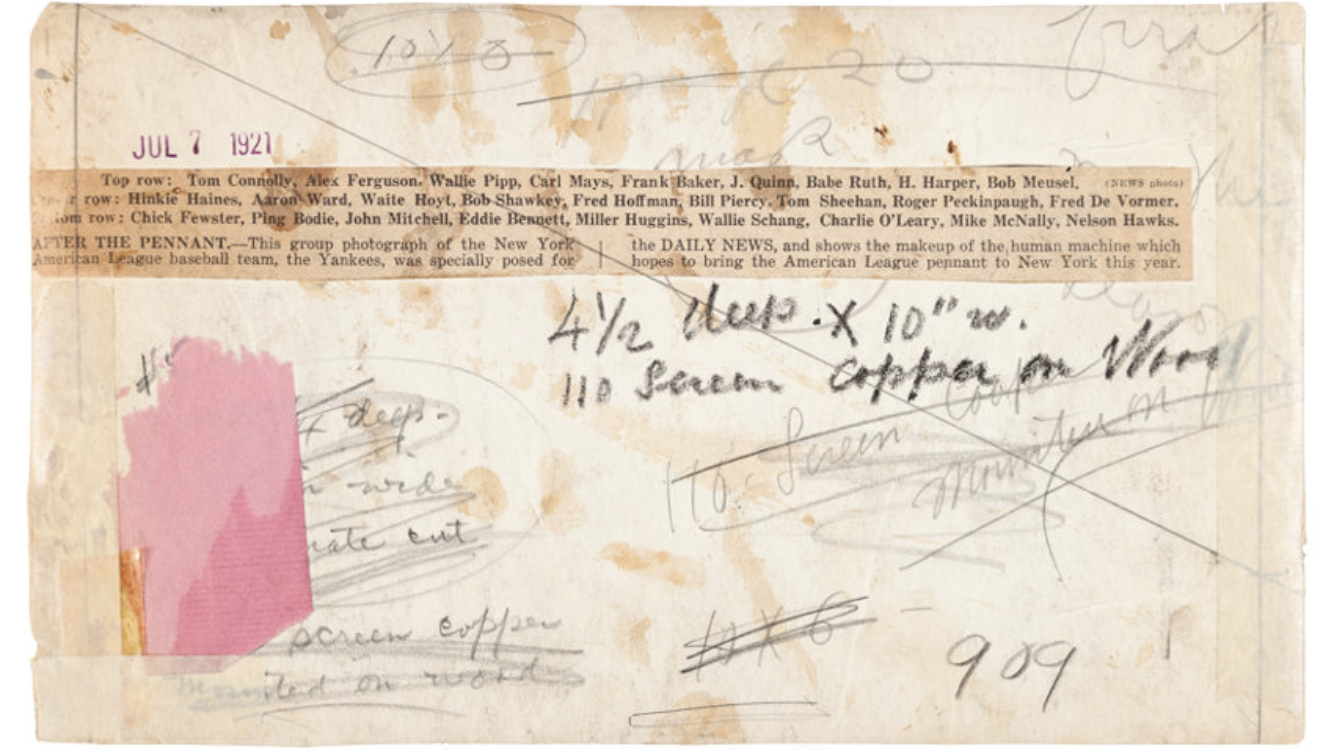 10 x 8
20
JUL 7 1921
Top row: Tom Connolly, Alex Ferguson. Wallie Pipp, Carl Mays, Frank Baker, J. Quinn, Babe Ruth, H. Harper, Bob Meusel. (NEWS photo)
r row: Hinkie Haines, Aaron Ward, Waite Hoyt, Bob Shawkey, Fred Hoffman, Bill Piercy. Tom Sheehan, Roger Peckinpaugh, Fred De Vormer.
om row: Chick Fewster, Ping Bodie, John Mitchell, Eddie Bennett, Miller Huggins, Wallie Schang, Charlie O'Leary, Mike McNally, Nelson Hawks.
AFTER THE PENNANT.—This group photograph of the New York
American League baseball team, the Yankees, was specially posed for
the DAILY NEWS, and shows the makeup of the human machine which
hopes to bring the American League pennant to New York this year.
4 1/2 deep. X 10" w.
110 Screen copper on Wood
110 Screen
Mounted on
deep-
wide
cut
screen copper
on wood
909